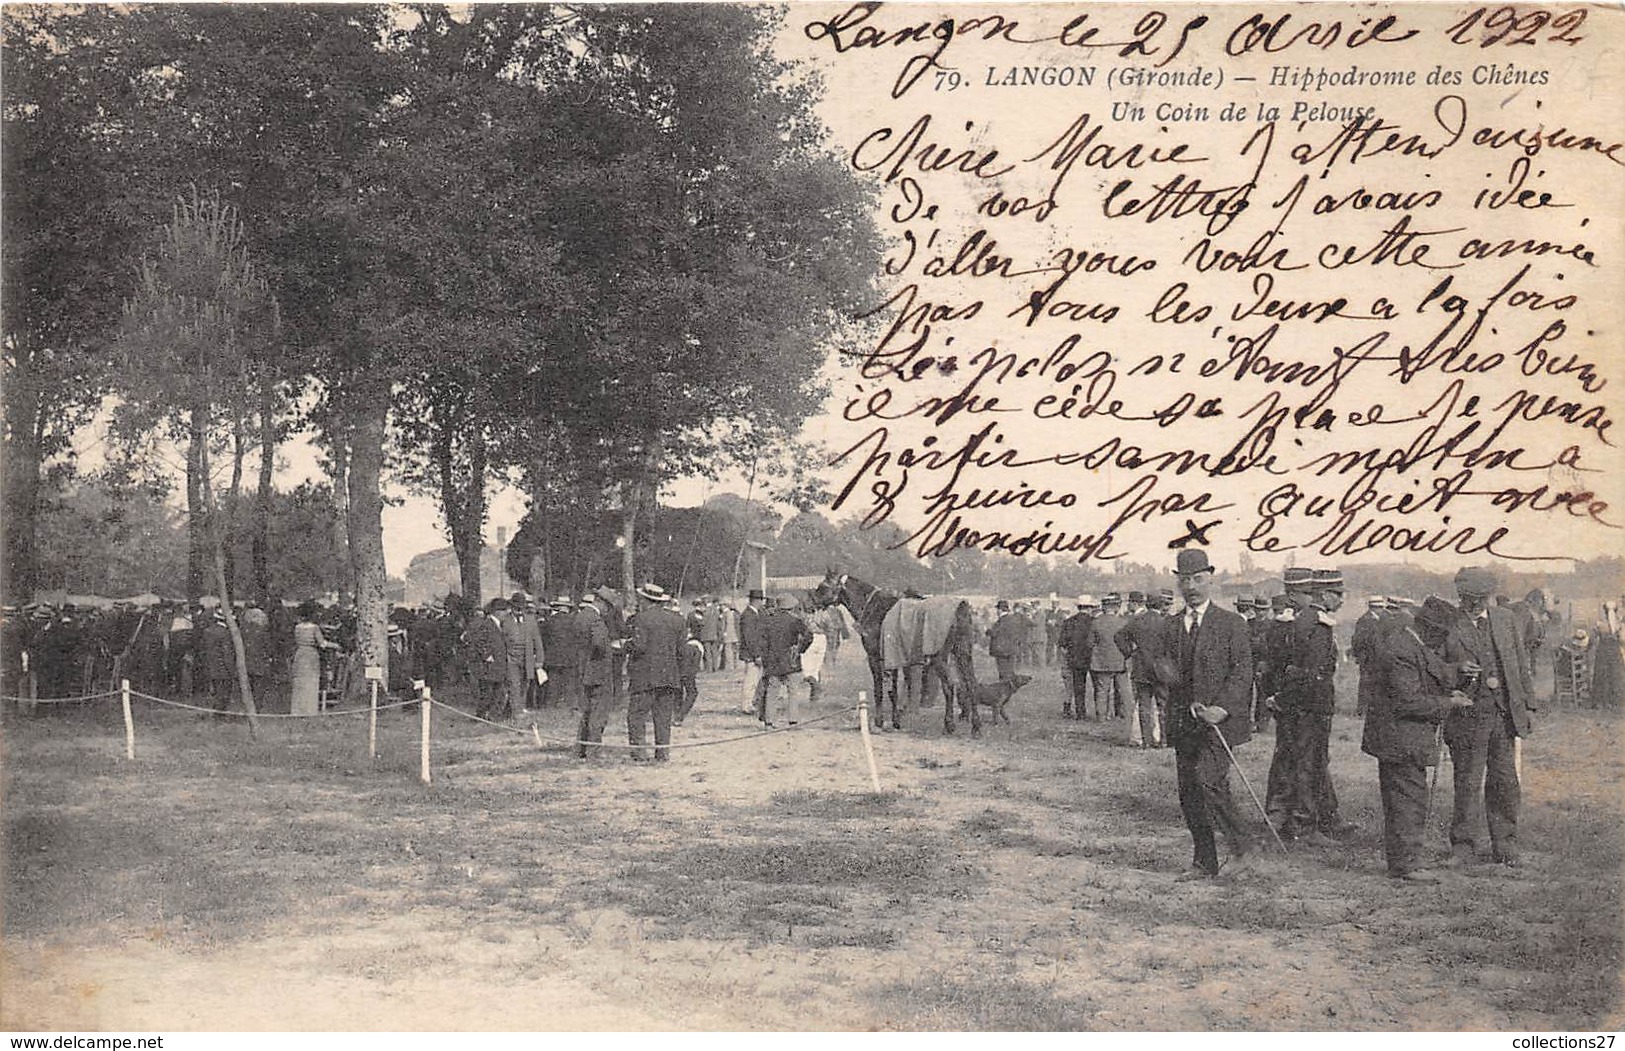 Langon le 25 Avril 1922
79. LANGON (Gironde) — Hippodrome des Chênes
Un Coin de la Pelouse
Chère Marie J'attendais une
de vos lettres j'avais idée
d'aller vous voir cette année
pas tous les deux a la fois
n'étant très bien
il me cède sa place je pense
partir samedi matin a
8 heures par avec
Monsieur x le Maire
delcampe.net
collections27